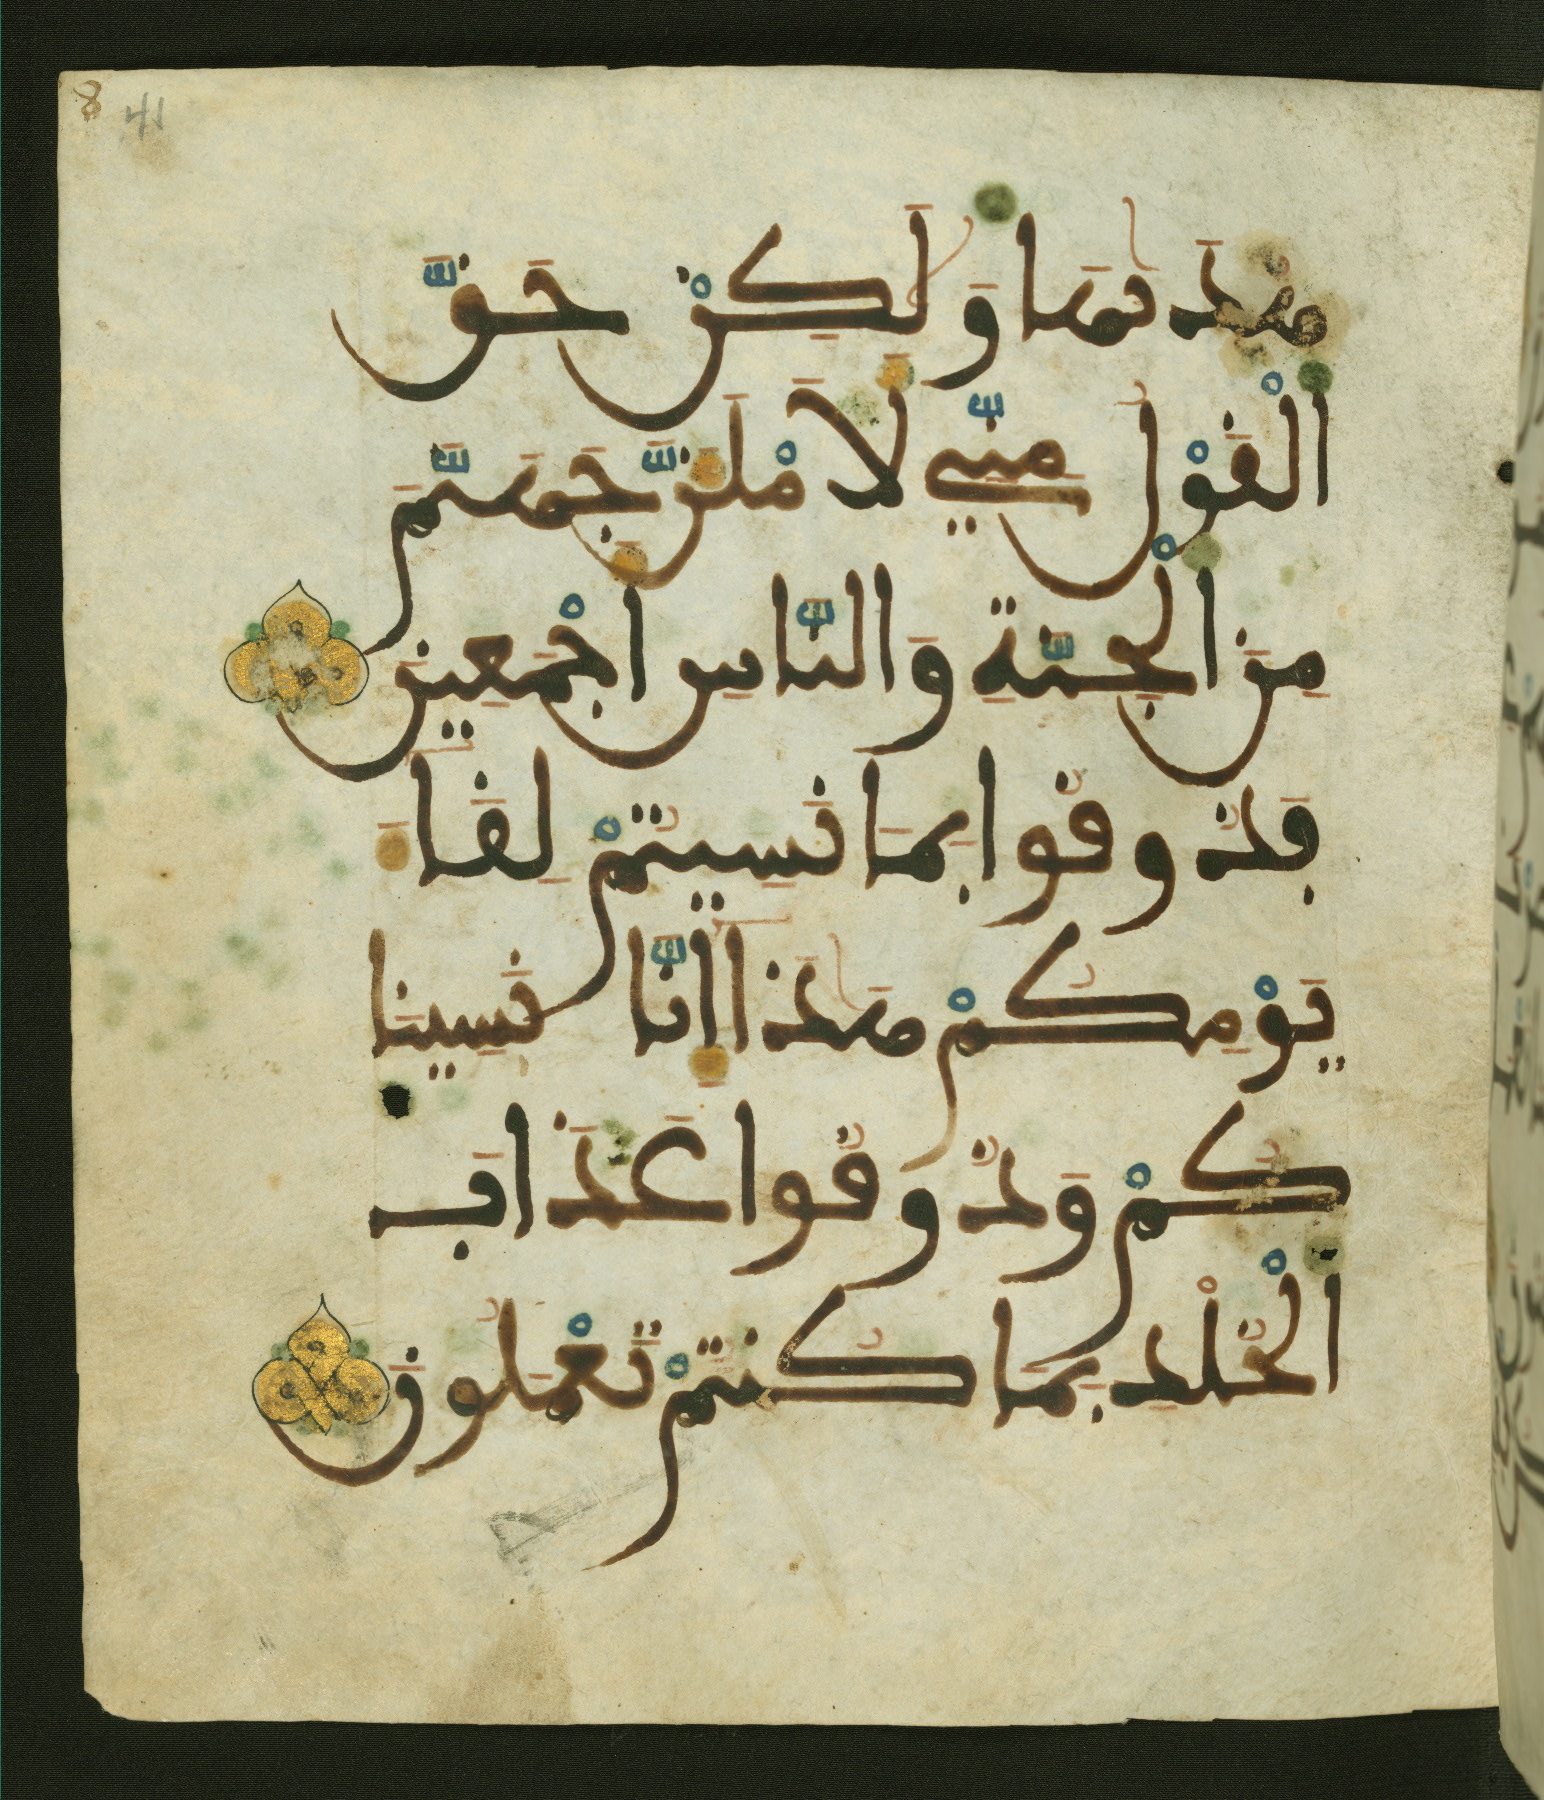 8 41
هُدَىٰهَا وَلَٰكِنْ حَقَّ
الْقَوْلُ مِنِّي لَأَمْلَأَنَّ جَهَنَّمَ
مِنَ الْجِنَّةِ وَالنَّاسِ أَجْمَعِينَ
فَذُوقُوا بِمَا نَسِيتُمْ لِقَاءَ
يَوْمِكُمْ هَٰذَا إِنَّا نَسِينَا
كُمْ وَذُوقُوا عَذَابَ
الْخُلْدِ بِمَا كُنتُمْ تَعْمَلُونَ